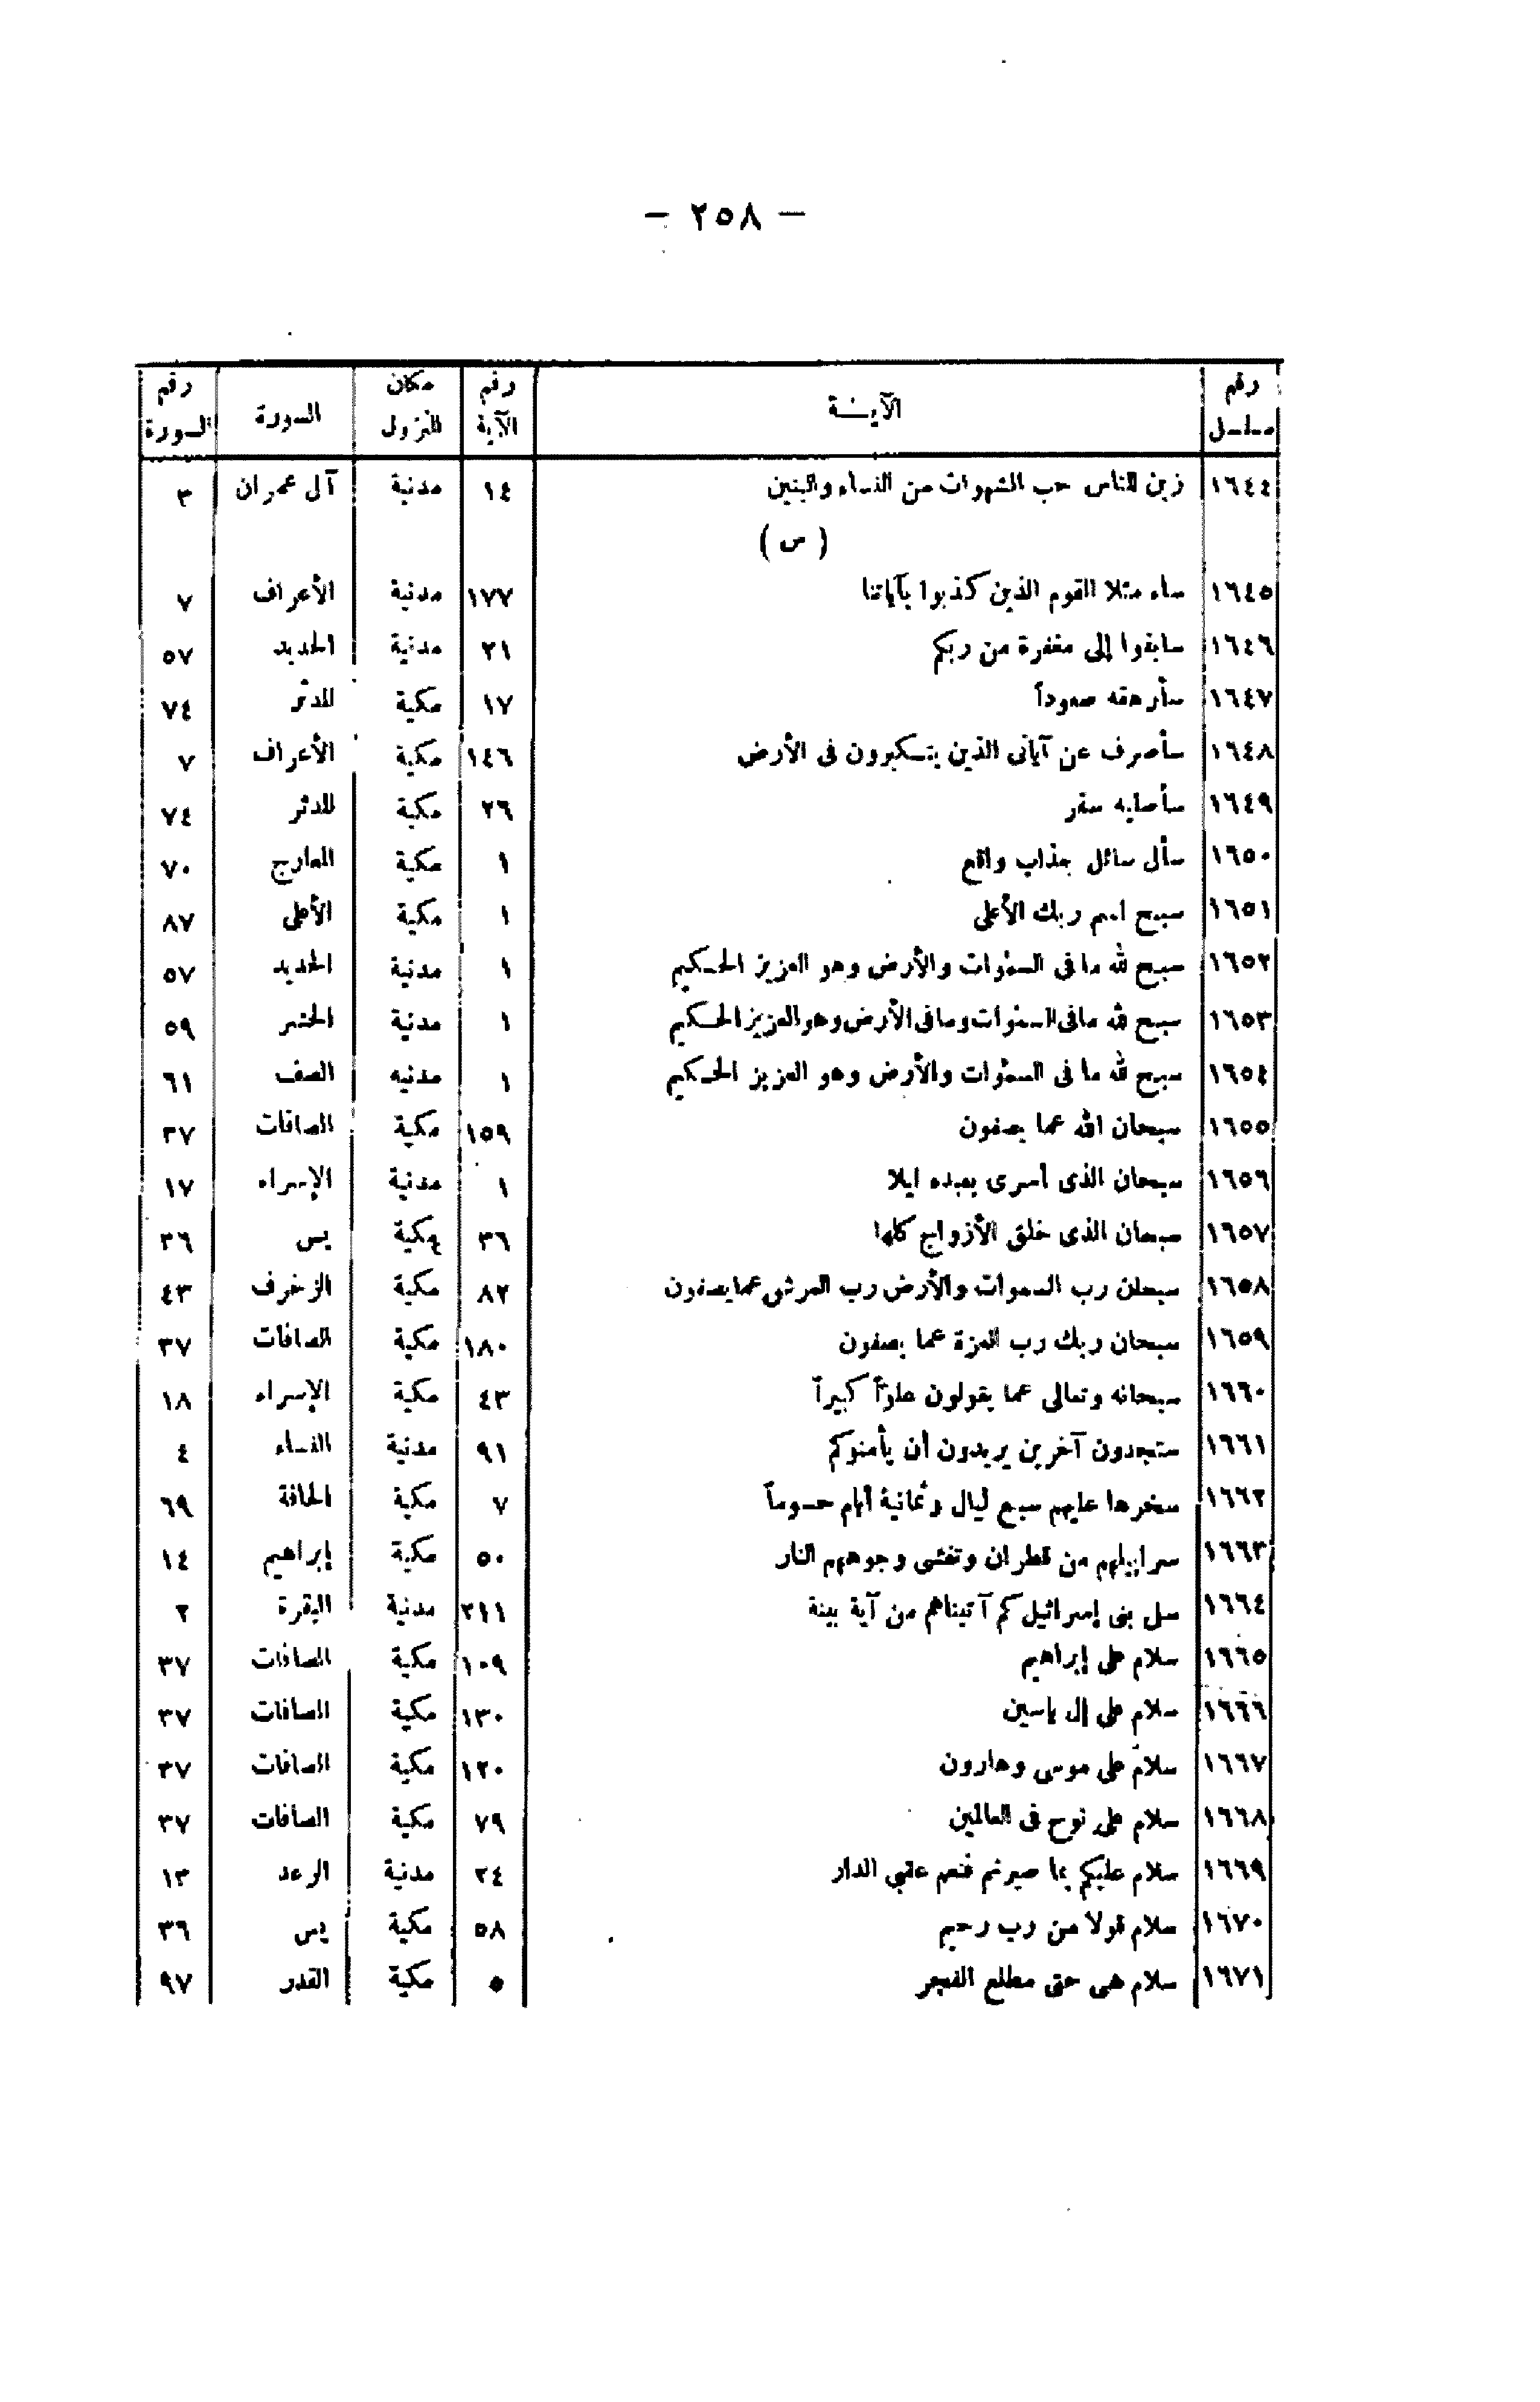 — ٢٥٨ —
رقم مسلسل | الآيــة | رقم الآية | مكان النزول | السورة | رقم السورة
١٦٤٤ | زين للناس حب الشهوات من النساء والبنين | ١٤ | مدنية | آل عمران | ٣
( س )
١٦٤٥ | ساء مثلا القوم الذين كذبوا بآياتنا | ١٧٧ | مدنية | الأعراف | ٧
١٦٤٦ | سابقوا إلى مغفرة من ربكم | ٢١ | مدنية | الحديد | ٥٧
١٦٤٧ | سأرهقه صعوداً | ١٧ | مكية | المدثر | ٧٤
١٦٤٨ | سأصرف عن آياتى الذين يتكبرون فى الأرض | ١٤٦ | مكية | الأعراف | ٧
١٦٤٩ | سأصليه سقر | ٢٦ | مكية | المدثر | ٧٤
١٦٥٠ | سأل سائل بعذاب واقع | ١ | مكية | المعارج | ٧٠
١٦٥١ | سبح اسم ربك الأعلى | ١ | مكية | الأعلى | ٨٧
١٦٥٢ | سبح لله ما فى السموات والأرض وهو العزيز الحكيم | ١ | مدنية | الحديد | ٥٧
١٦٥٣ | سبح لله مافى السموات ومافى الأرض وهو العزيز الحكيم | ١ | مدنية | الحشر | ٥٩
١٦٥٤ | سبح لله ما فى السموات والأرض وهو العزيز الحكيم | ١ | مدنيه | الصف | ٦١
١٦٥٥ | سبحان الله عما يصفون | ١٥٩ | مكية | الصافات | ٣٧
١٦٥٦ | سبحان الذى أسرى بعبده ليلا | ١ | مدنية | الإسراء | ١٧
١٦٥٧ | سبحان الذى خلق الأزواج كلها | ٣٦ | مكية | يس | ٣٦
١٦٥٨ | سبحان رب السموات والأرض رب العرش عما يصفون | ٨٢ | مكية | الزخرف | ٤٣
١٦٥٩ | سبحان ربك رب العزة عما يصفون | ١٨٠ | مكية | الصافات | ٣٧
١٦٦٠ | سبحانه وتعالى عما يقولون علوّاً كبيراً | ٤٣ | مكية | الإسراء | ١٨
١٦٦١ | ستجدون آخرين يريدون أن يأمنوكم | ٩١ | مدنية | النساء | ٤
١٦٦٢ | سخرها عليهم سبع ليال وثمانية أيام حسوماً | ٧ | مكية | الحاقة | ٦٩
١٦٦٣ | سرابيلهم من قطران وتغشى وجوههم النار | ٥٠ | مكية | إبراهيم | ١٤
١٦٦٤ | سل بنى إسرائيل كم آتيناهم من آية بينة | ٢١١ | مدنية | البقرة | ٢
١٦٦٥ | سلام على إبراهيم | ١٠٩ | مكية | الصافات | ٣٧
١٦٦٦ | سلام على إل ياسين | ١٣٠ | مكية | الصافات | ٣٧
١٦٦٧ | سلام على موسى وهارون | ١٢٠ | مكية | الصافات | ٣٧
١٦٦٨ | سلام على نوح فى العالمين | ٧٩ | مكية | الصافات | ٣٧
١٦٦٩ | سلام عليكم بما صبرتم فنعم عقبى الدار | ٢٤ | مدنية | الرعد | ١٣
١٦٧٠ | سلام قولا من رب رحيم | ٥٨ | مكية | يس | ٣٦
١٦٧١ | سلام هى حتى مطلع الفجر | ٥ | مكية | القدر | ٩٧